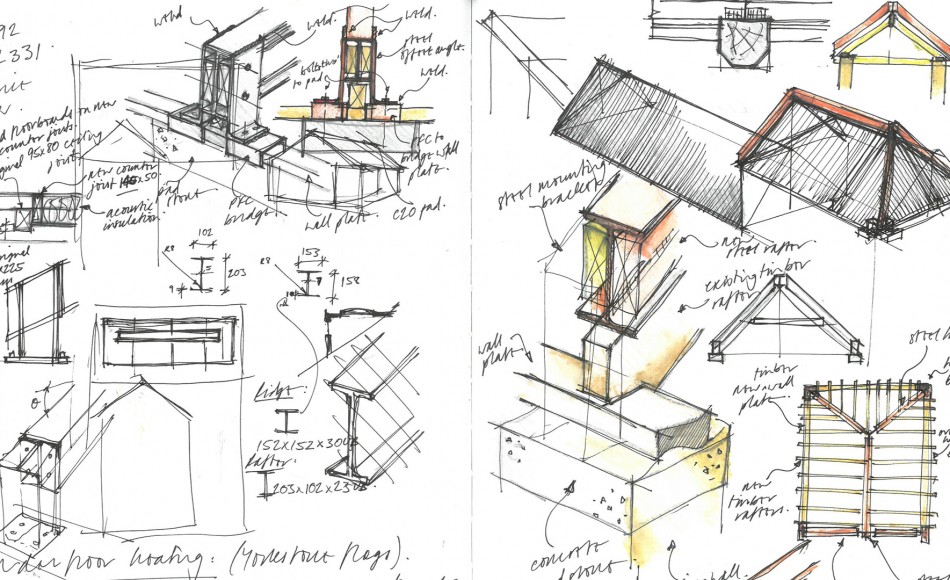 92
2331
weld
d floorboards on new
counter joists.
95x80 ceiling
joists
new counter
joist 145x50.
acoustic
insulation.
pad
stout
PFC
bridge
wall plate.
C20 pad.
weld.
weld.
steel
offset angle.
weld.
bolted
to pad.
PFC to
bridge wall
plate.
102
R8
203
9
153
R8
158
θ
Ridge:
152x152x30UC
Rafter:
203x102x23UB.
floor heating: (Yorkstone flags).
steel mounting
bracket
new
steel rafter.
existing timber
rafter
wall
plate
timber
new wall
plate.
new
timber
rafters.
concrete